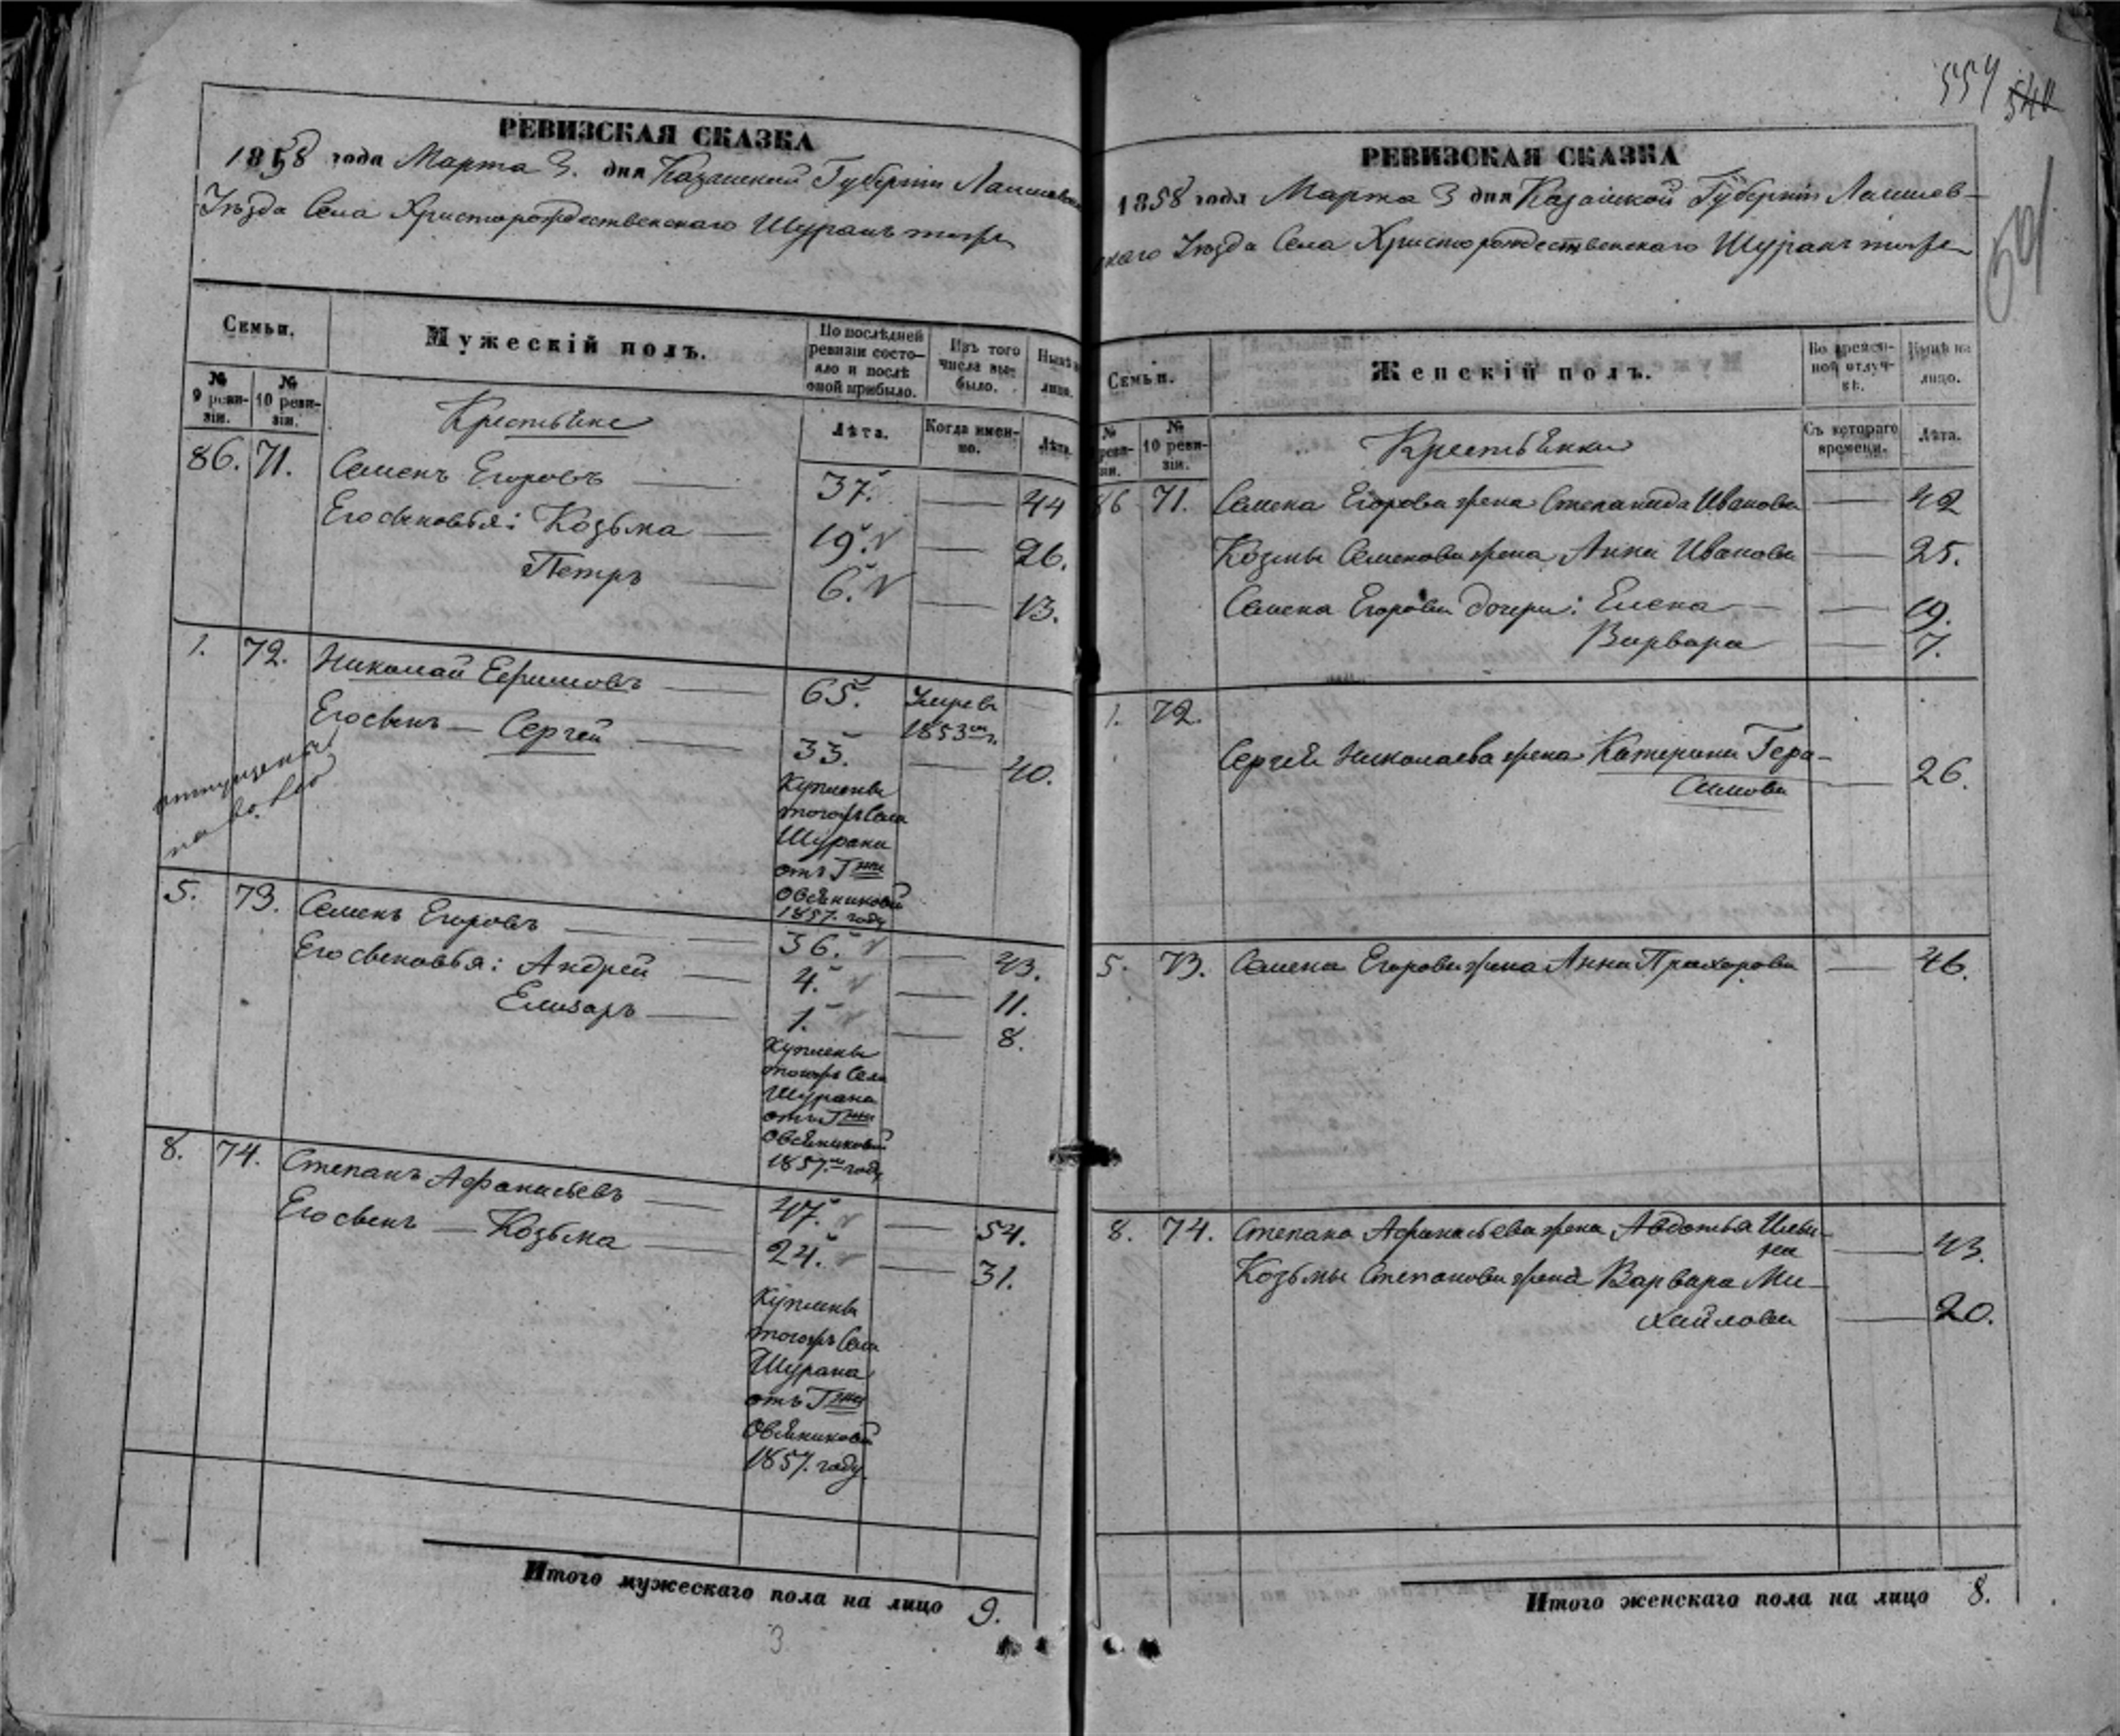 РЕВИЗСКАЯ СКАЗКА
1858 года Марта 3. дня Казанской Губернiи Лаишевскаго
Уѣзда Села Христорождественскаго Шуранъ тожъ
Семьи.
Мужескiй полъ.
По послѣдней ревизiи состо-
яло и послѣ
оной прибыло.
Изъ того
числа вы-
было.
Нынѣ
лицо.
№
9 реви-
зiи.
№
10 реви-
зiи.
Лѣта.
Когда имен-
но.
Лѣта.
Крестьяне
86. 71. Семенъ Егоровъ 37. 44
Его сыновья: Козьма 19. 26.
Петръ 6. 13.
1. 72. Николай Ефимовъ 65. Умре въ
1853 г.
Его сынъ Сергей 33. 40.
отпущена
на волю
Куплены
тогожъ Села
Шурана
отъ Гжи
Овсяниковой
1857. году
5. 73. Семенъ Егоровъ 36. 43.
Его сыновья: Андрей 4. 11.
Елизаръ 1. 8.
Куплены
тогожъ Села
Шурана
отъ Гжи
Овсяниковой
1857. году
8. 74. Степанъ Афанасьевъ 47. 54.
Его сынъ Козьма 24. 31.
Куплены
тогожъ Села
Шурана
отъ Гжи
Овсяниковой
1857. году
Итого мужескаго пола на лицо 9.
3
557 540
РЕВИЗСКАЯ СКАЗКА
1858 года Марта 3 дня Казанской Губернiи Лаишев-
скаго Уѣзда Села Христорождественскаго Шуранъ тожъ
Семьи.
Женскiй полъ.
Во времен-
ной отлуч-
кѣ.
Нынѣ на
лицо.
№
реви-
зiи.
№
10 реви-
зiи.
Съ котораго
времени.
Лѣта.
Крестьянки
86 71. Семена Егорова жена Степанида Иванова 42
Козмы Семенова жена Анна Иванова 25.
Семена Егорова дочери: Елена 19.
Варвара 7.
1. 72.
Сергея Николаева жена Катерина Гера-
симова 26.
5. 73. Семена Егорова жена Анна Прохорова 46.
8. 74. Степана Афанасьева жена Авдотья Ильи-
на 43.
Козьмы Степанова жена Варвара Ми-
хайлова 20.
Итого женскаго пола на лицо 8.